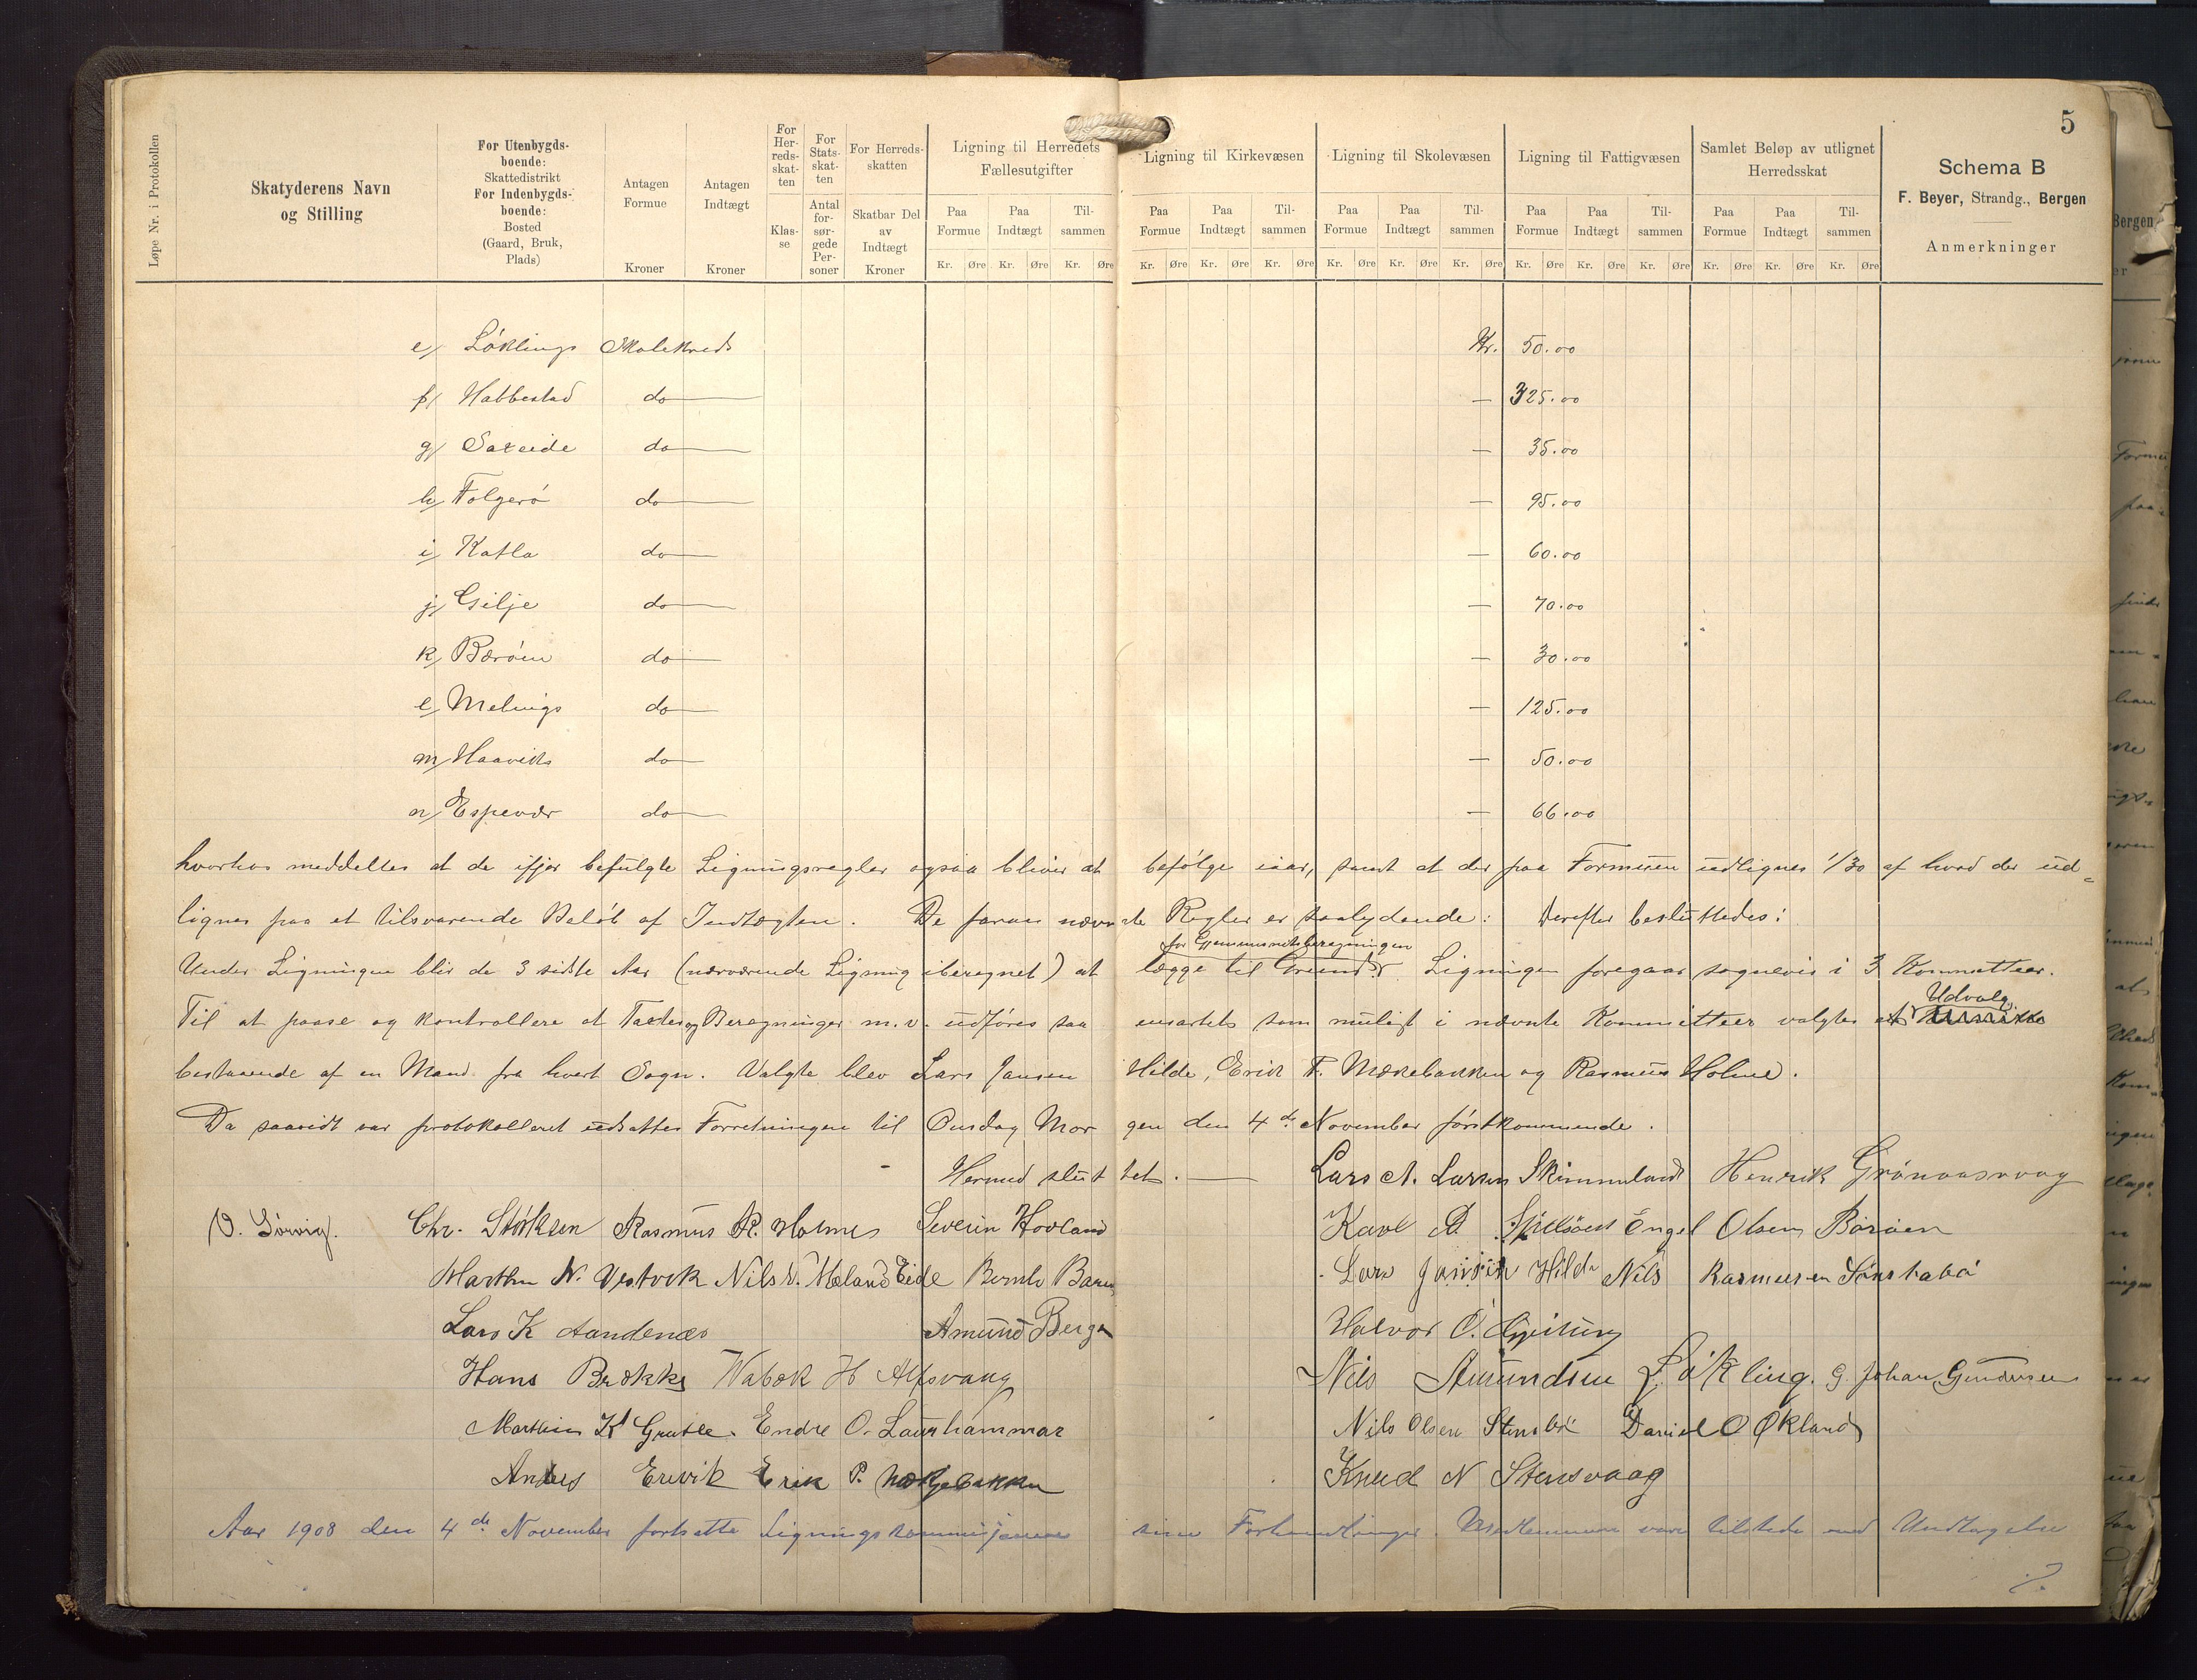 5
Løpe Nr. i Protokollen
Skatyderens Navn og Stilling
For Utenbygds-boende: Skattedistrikt For Indenbygds-boende: Bosted (Gaard, Bruk, Plads)
Antagen Formue Kroner
Antagen Indtægt Kroner
For Herreds-skat-ten Klas-se
For Stats-skat-ten Antal for-sør-gede Per-soner
For Herreds-skatten Skatbar Del av Indtægt Kroner
Ligning til Herredets Fællesutgifter
Paa Formue Paa Indtægt Til-sammen
Kr. Øre Kr. Øre Kr. Øre
Ligning til Kirkevæsen
Paa Formue Paa Indtægt Til-sammen
Kr. Øre Kr. Øre Kr. Øre
Ligning til Skolevæsen
Paa Formue Paa Indtægt Til-sammen
Kr. Øre Kr. Øre Kr. Øre
Ligning til Fattigvæsen
Paa Formue Paa Indtægt Til-sammen
Kr. Øre Kr. Øre Kr. Øre
Samlet Beløp av utlignet Herredsskat
Paa Formue Paa Indtægt Til-sammen
Kr. Øre Kr. Øre Kr. Øre
Schema B
F. Beyer, Strandg., Bergen
Anmerkninger
e/ Løklings Skolekreds Kr. 50.00
f/ Habbestad do — 325.00
g/ Sæteide do — 35.00
h/ Folgerø do — 95.00
i/ Katla do — 60.00
j/ Gilje do — 70.00
k/ Børøen do — 30.00
l/ Melings do — 125.00
m/ Haaviks do — 50.00
n/ Espevær do — 66.00
hvorhos meddeltes at de ifjor befulgte Ligningsregler ogsaa bliver at befølge iaar, samt at der paa Formuen udlignes 1/30 af hvad der ud=
lignes paa et tilsvarende Beløb af Indtægten. De foran nævnte Regler er saalydende: Derefter besluttedes:
for Gjennemsnitsberegningen
Under Ligningen blir de 3 sidste Aar (nærværende Ligning iberegnet) at lægge til Grund. Ligningen foregaar sognevis i 3 Kommitteer.
Udvalg
Til at paase og kontrollere at Taxter og Beregninger m.v. udføres saa ensartets som muligt i nævnte Kommitteer valgtes et
bestaaende af en Mand fra hvert Sogn. Valgte blev Lars Jansen Hilde, Erik P. Mækebakken og Rasmus Holme.
Da saavidt var protokolleret udsattes Forretningen til Onsdag Morgen den 4de November førstkommende.
Hermed sluttet. — Lars A. Larsen Skimmeland Henrik Grønaasvaag
O. Sørvig. Chr. Størksen Rasmus R. Holme Severin Hovland Karl Engel Olsen Børøen
Marthin N. Vestvik Nils Mæland Eide Lars Jansen Hilde Nils Rasmussen Sønstabø
Lars K Aandenæs Amund Berge Halvor O.
Hans Brække H Alfsvaag Nils Amundsen Løkling. G. Johan Gundersen
Marthin K Grutle. Endre O. Laurhammar Nils Olsen Stensbø Daniel O Økland
Anders Erevik Erik P. Mækjebakken Knud N Stensvaag
Aar 1908 den 4de November fortsatte Ligningskommisjonen sine Forhandlinger. Medlemmerne var tilstede med Undtagelse